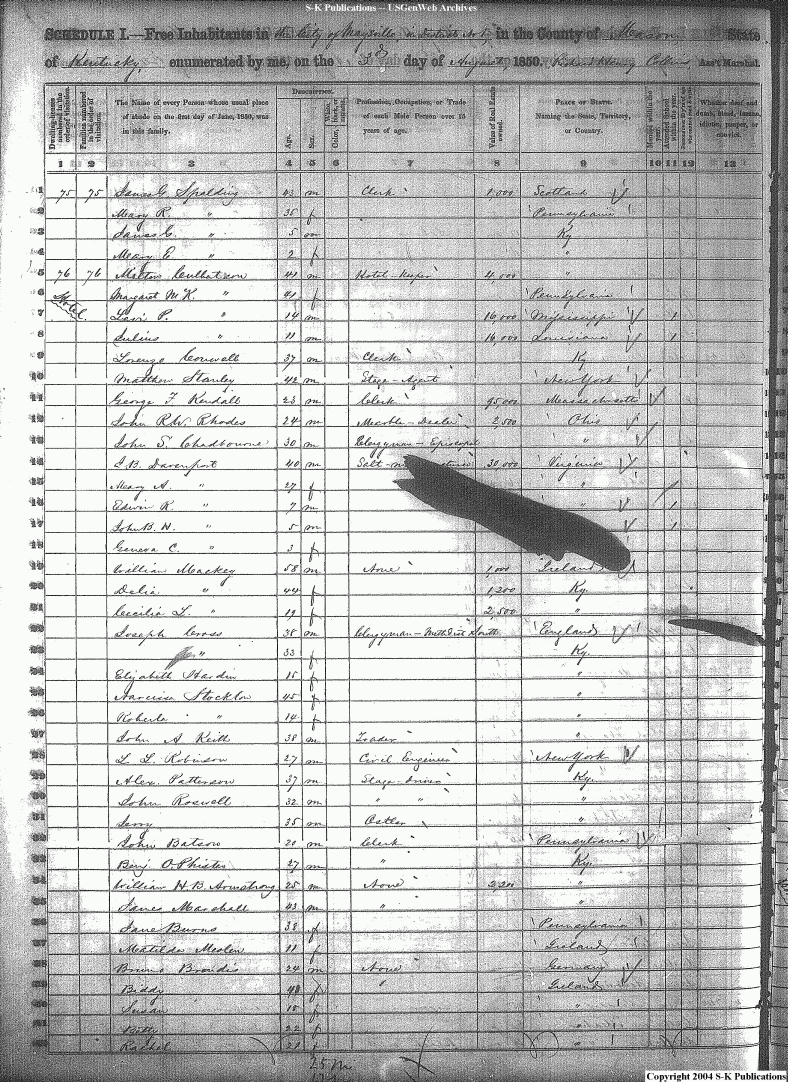 S-K Publications -- USGenWeb Archives
SCHEDULE I.—Free Inhabitants in the City of Maysville in the County of Mason State
of Kentucky enumerated by me, on the 3d day of August, 1850. Collins Ass't Marshal.
Dwelling-houses numbered in the order of visitation.
Families numbered in the order of visitation.
The Name of every Person whose usual place of abode on the first day of June, 1850, was in this family.
Description.
Age.
Sex.
Color,
Profession, Occupation, or Trade of each Male Person over 15 years of age.
Value of Real Estate owned.
Place of Birth. Naming the State, Territory, or Country.
Married within the year.
Whether deaf and dumb, blind, insane, idiotic, pauper, or convict.
1 2 3 4 5 6 7 8 9 10 11 12 13
1 75 75 James G. Spalding 43 m Clerk 1,000 Scotland
2 Mary R. " 35 f Pennsylvania
3 James G. " 5 m Ky
4 Mary E. " 2 f "
5 76 76 Milton Culbertson 41 m Hotel-Keeper 4,000 "
6 Hotel. Margaret McK. " 41 f Pennsylvania
7 Levi P. " 14 m 16,000 Mississippi 1
8 Julius " 11 m 16,000 Louisiana 1
9 Lorenzo Conwell 37 m Clerk Ky
10 Matthew Stanley 42 m Stage-Agent New York
11 George F. Kendall 23 m Clerk 95,000 Massachusetts
12 John R.W. Rhodes 24 m Marble-Dealer 2,500 Ohio
13 John S. Chadbourne 30 m Clergyman-Episcopal "
14 Davenport 40 m Salt 30,000 Virginia
15 Mary A. " 27 f "
16 Edwin R. " 7 m " 1
17 John B. H. " 5 m 1
18 Geneva C. " 3 f
19 William Mackey 58 m None 1,000 Ireland
20 Delia " 44 f 1,200 Ky.
21 Cecilia L. " 19 f 2,500 "
22 Joseph Cross 38 m Clergyman-Methdist South England
23 " 33 f Ky.
24 Elizabeth Hardin 15 f "
25 Narcissa Stockton 45 f "
26 Roberta " 14 f "
27 John A Keith 38 m Trader "
28 L. L. Robinson 27 m Civil Engineer New York
29 Alex. Patterson 37 m Stage-Driver Ky.
30 John Roswell 32 m " " "
31 Jerry 35 m Ostler "
32 John Batson 20 m Clerk Pennsylvania
33 Benj. O. Phister 27 m " Ky.
34 William H. B. Armstrong 25 m None 2,200 "
35 James Marshall 43 m " "
36 Jane Burns 38 f Pennsylvania
37 Matilda 11 f Ireland
38 Bruno Brandis 24 m None Germany
39 Biddy f " Ireland
40 Susan f "
41 22 f "
42 Rachel f "
25 m
Copyright 2004 S-K Publications